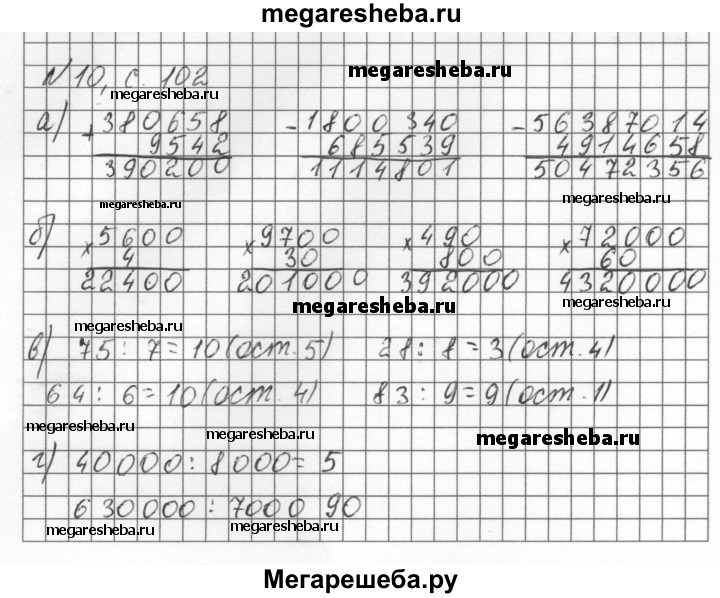 megaresheba.ru
№10, с. 102
megaresheba.ru
megaresheba.ru
а) +380658 -1800340 -56387014
9542 685539 4914658
390200 1114801 50472356
megaresheba.ru
megaresheba.ru
б) ×5600 ×9700 ×490 ×72000
4 30 800 60
22400 201000 392000 4320000
megaresheba.ru
megaresheba.ru
megaresheba.ru
в) 75 : 7 = 10 (ост. 5) 28 : 8 = 3 (ост. 4)
64 : 6 = 10 (ост. 4) 83 : 9 = 9 (ост. 1)
megaresheba.ru
megaresheba.ru
megaresheba.ru
г) 40000 : 8000 = 5
630000 : 7000 90
megaresheba.ru
megaresheba.ru
Мегарешеба.ру